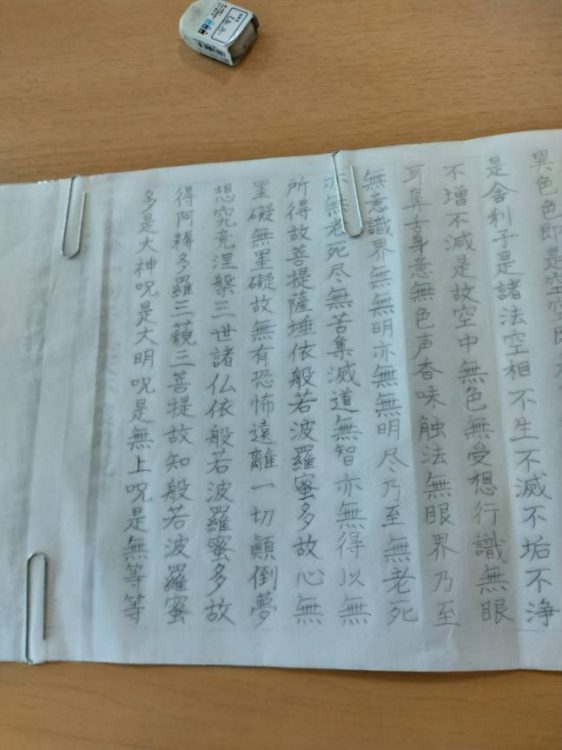 異色色即是空空即
是舎利子是諸法空相不生不滅不垢不浄
不増不減是故空中無色無受想行識無眼
耳鼻舌身意無色声香味触法無眼界乃至
無意識界無無明亦無無明尽乃至無老死
亦無老死尽無苦集滅道無智亦無得以無
所得故菩提薩埵依般若波羅蜜多故心無
罣礙無罣礙故無有恐怖遠離一切顛倒夢
想究竟涅槃三世諸仏依般若波羅蜜多故
得阿耨多羅三藐三菩提故知般若波羅蜜
多是大神呪是大明呪是無上呪是無等等